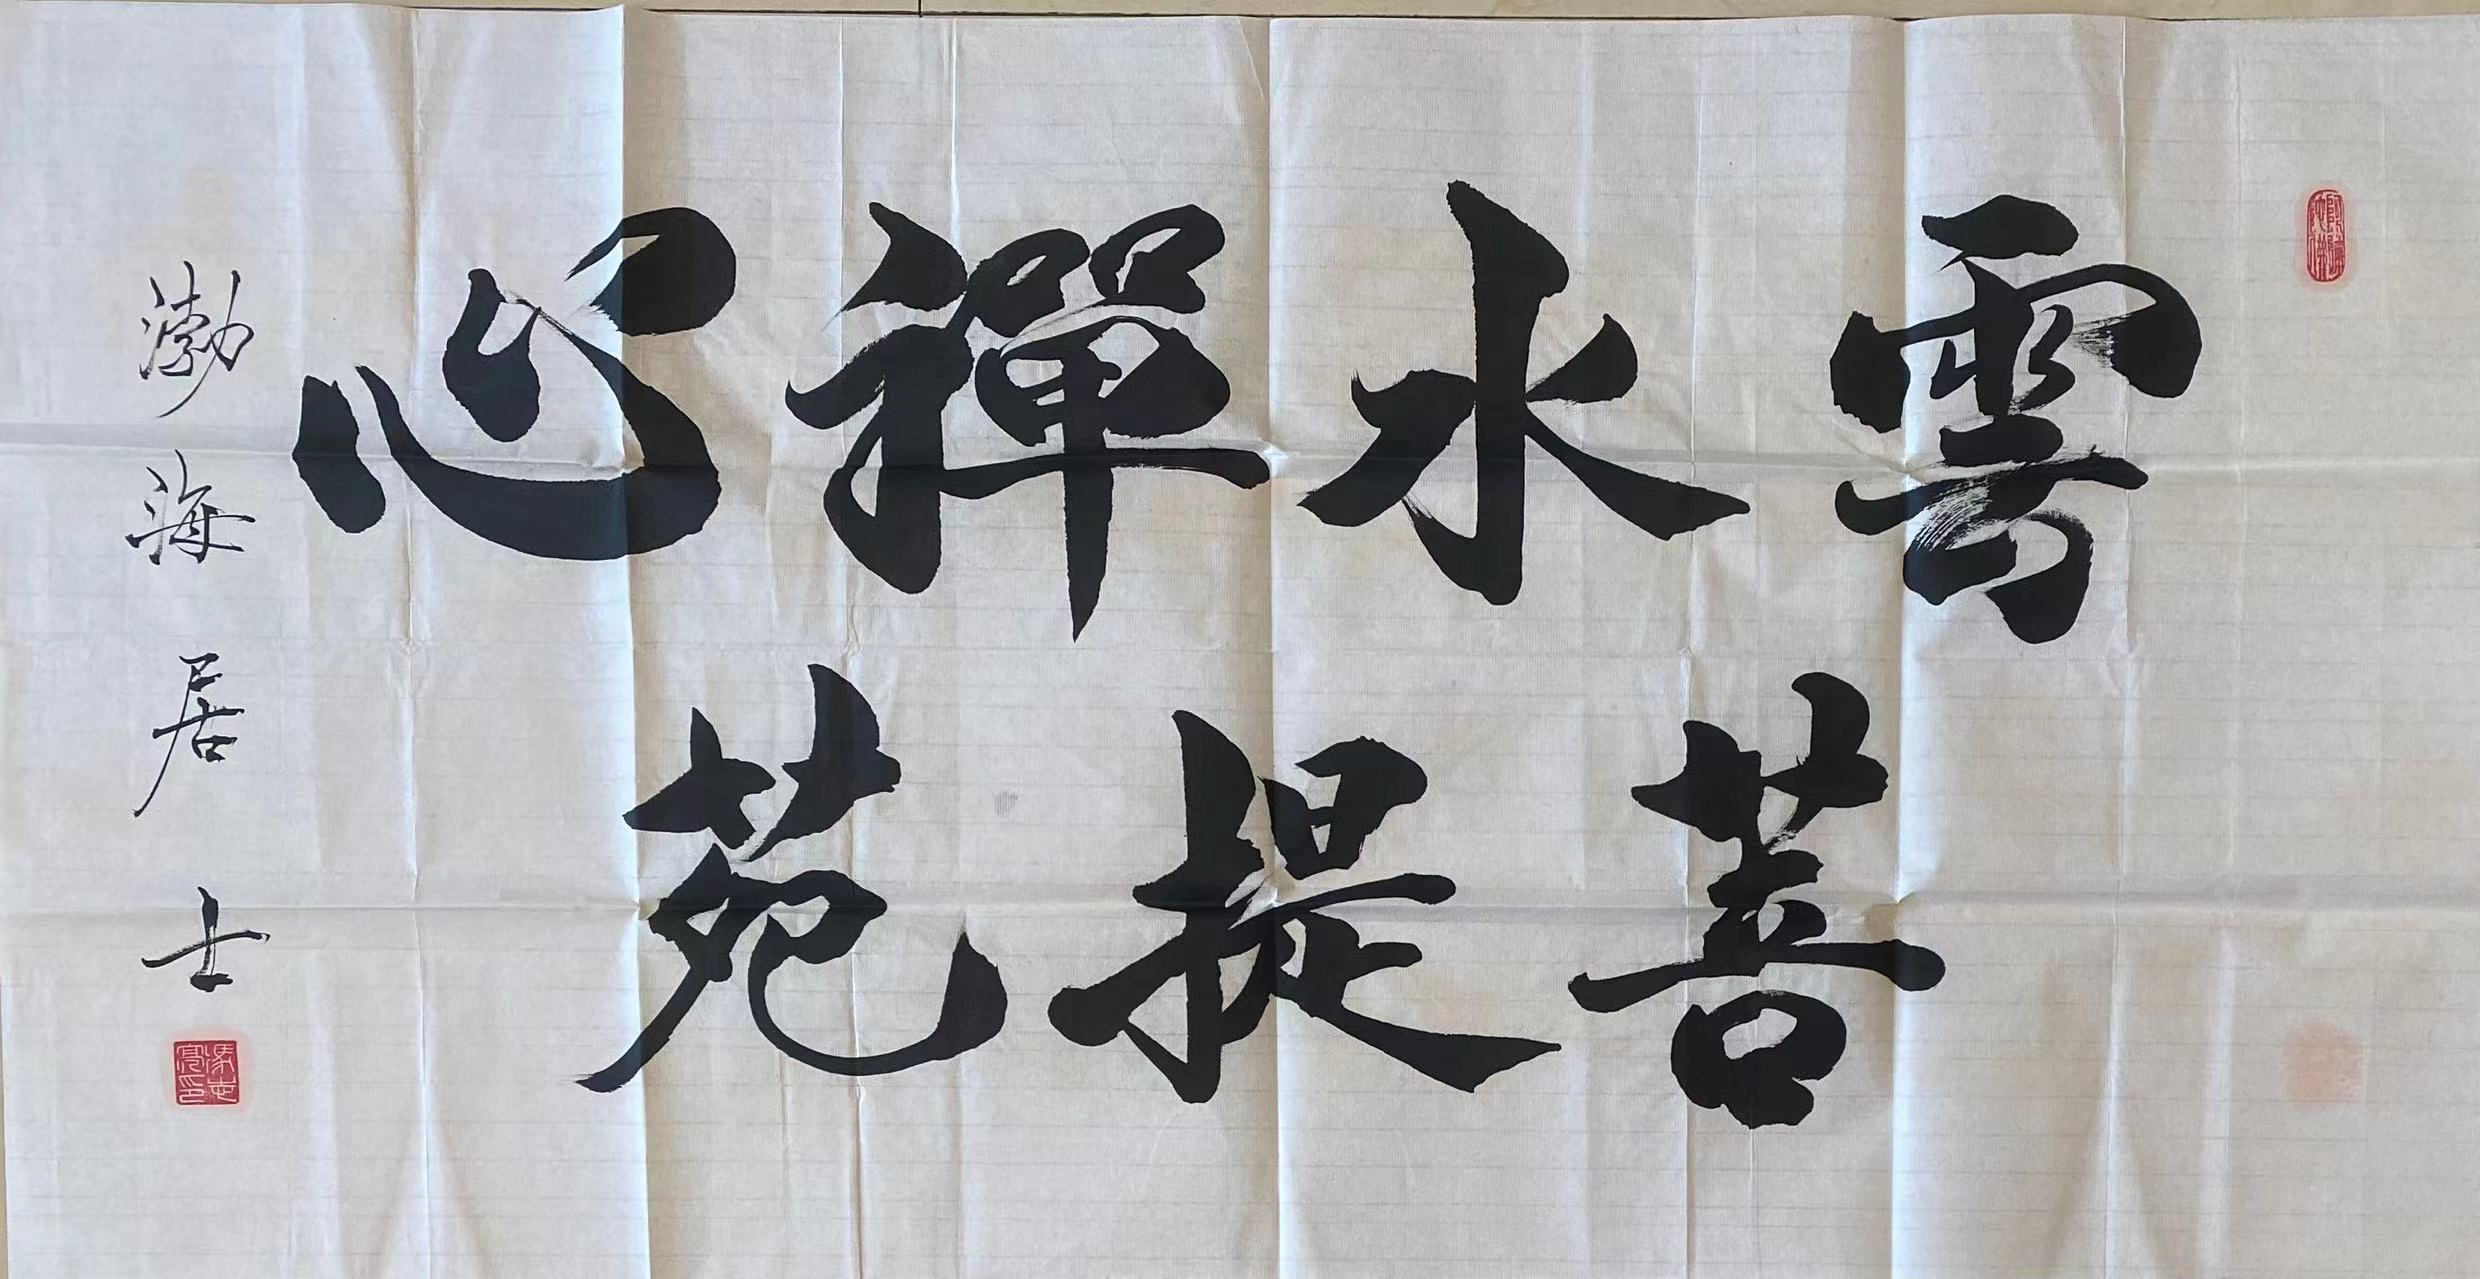 雲水禪心
菩提苑
渤海居士